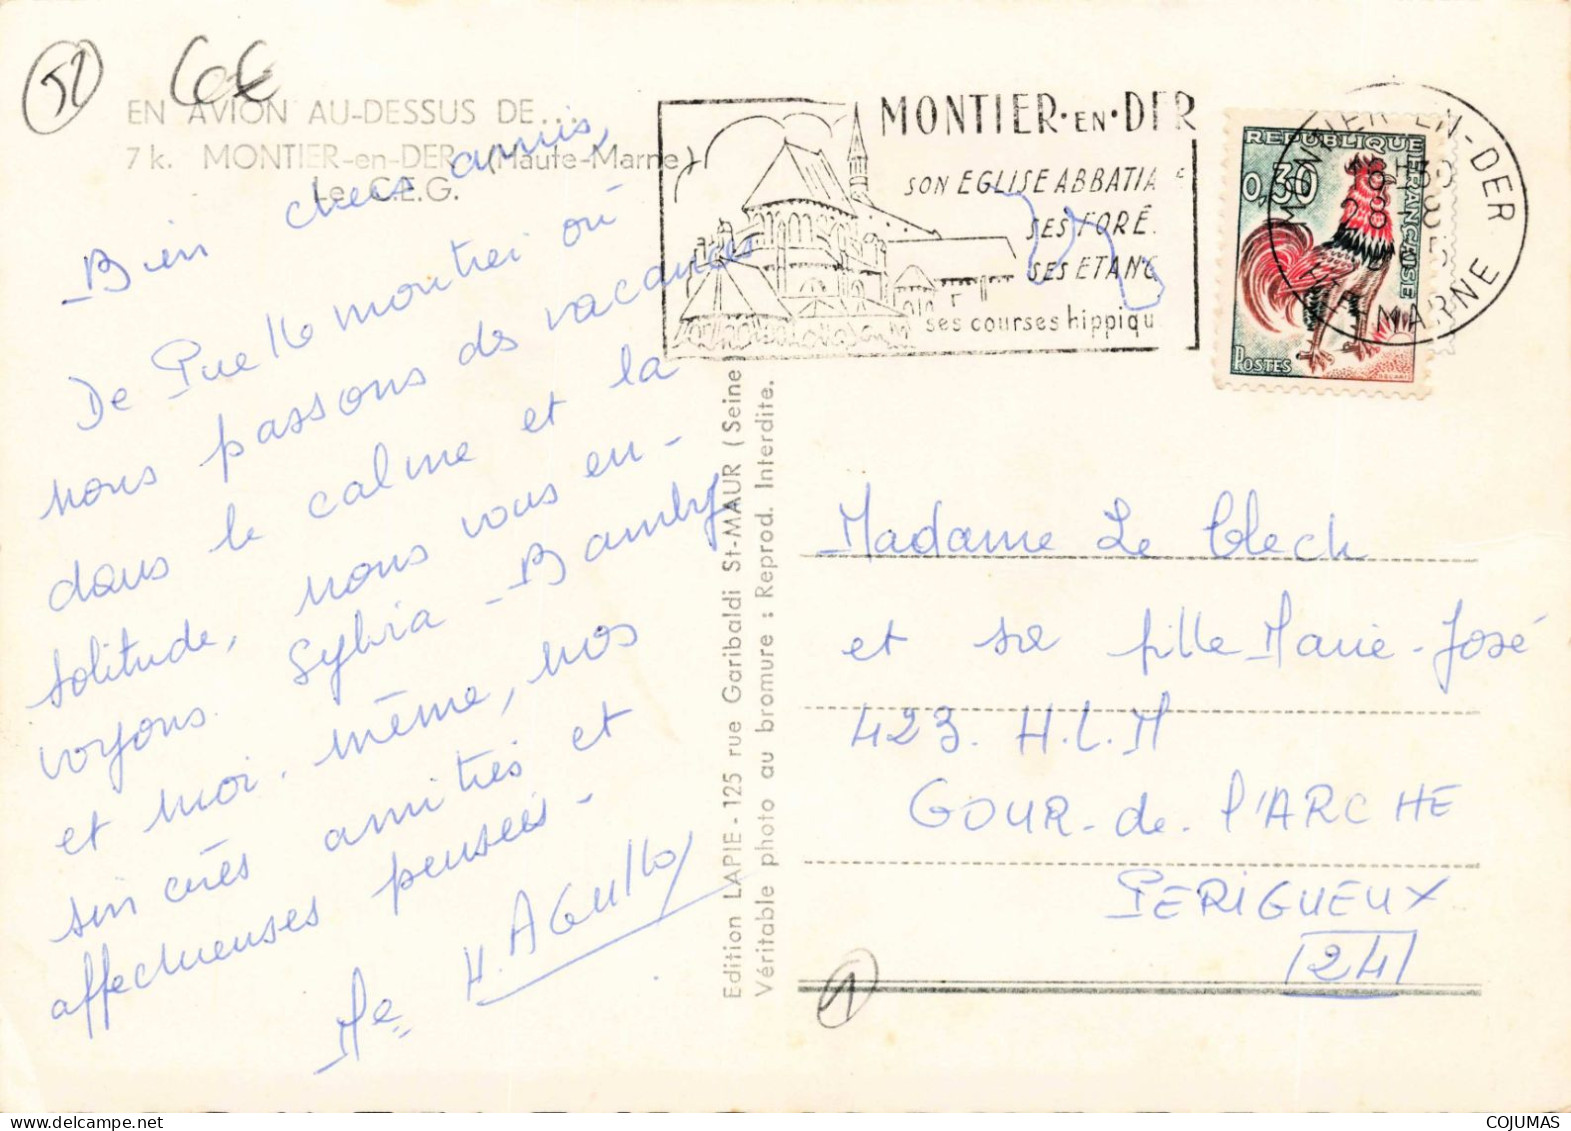 52
6€
EN AVION AU-DESSUS DE...
7 k. MONTIER-en-DER (Haute-Marne)
Le C.E.G.
Bien chers amis,
De Puellemontier où
nous passons des vacances
dans le calme et la
solitude, nous vous en-
voyons Sylvia - Bamby
et moi-même, nos
sincères amitiés et
affectueuses pensées -
Me H. AGullo
Edition LAPIE - 125 rue Garibaldi St-MAUR (Seine)
Véritable photo au bromure : Reprod. Interdite.
MONTIER-EN-DER
SON EGLISE ABBATIALE
SES FORÊ
SES ETANG
ses courses hippiqu
REPUBLIQUE
FRANÇAISE
0,30
POSTES
MONTIER-EN-DER
HTE-MARNE
Madame Le Clech
et sa fille Marie-José
423. H.L.M
GOUR-de-l'ARCHE
PERIGUEUX
24
1
COJUMAS